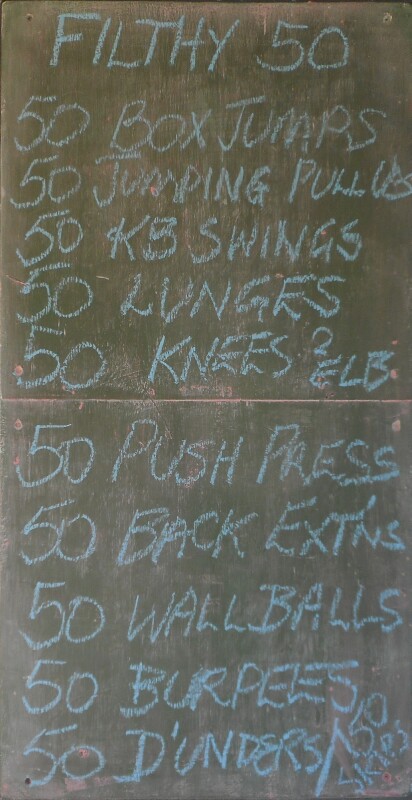 FILTHY 50
50 BOX JUMPS
50 JUMPING PULLUPS
50 KB SWINGS
50 LUNGES
50 KNEES 2 ELB
50 PUSH PRESS
50 BACK EXT'NS
50 WALLBALLS
50 BURPEES
50 D'UNDERS/